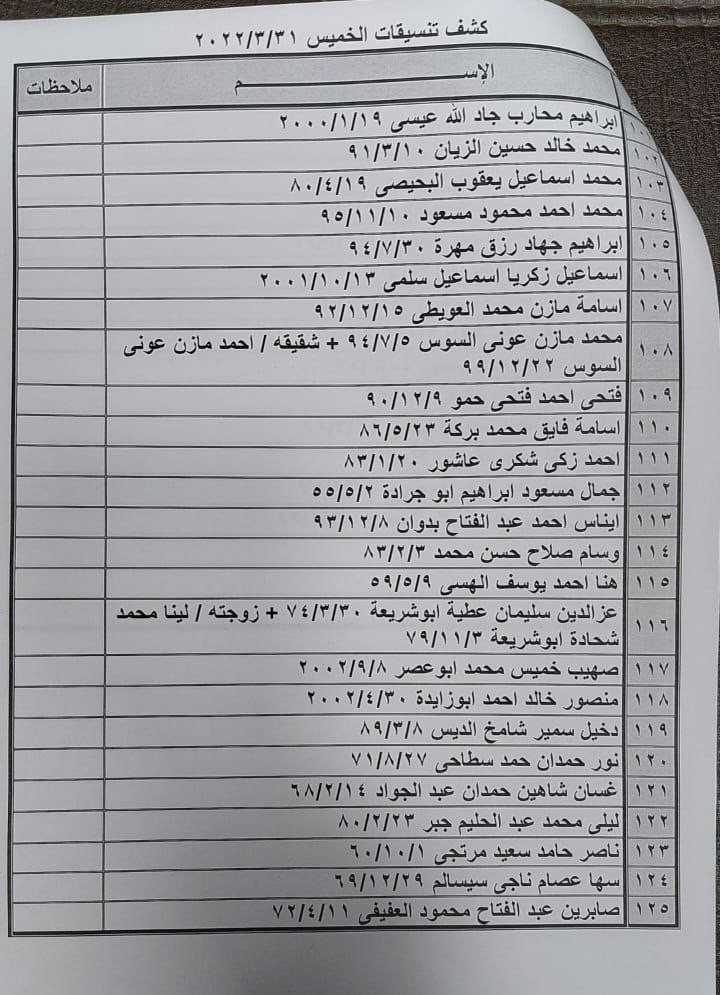 كشف تنسيقات الخميس ٢٠٢٢/٣/٣١
الإســـــــــــــــــــــــــم ملاحظات
ابراهيم محارب جاد الله عيسى ٢٠٠٠/١/١٩
١٠٢ محمد خالد حسين الزيان ٩١/٣/١٠
١٠٣ محمد اسماعيل يعقوب البحيصى ٨٠/٤/١٩
١٠٤ محمد احمد محمود مسعود ٩٥/١١/١٠
١٠٥ ابراهيم جهاد رزق مهرة ٩٤/٧/٣٠
١٠٦ اسماعيل زكريا اسماعيل سلمى ٢٠٠١/١٠/١٣
١٠٧ اسامة مازن محمد العويطى ٩٢/١٢/١٥
١٠٨ محمد مازن عونى السوس ٩٤/٧/٥ + شقيقه / احمد مازن عونى
السوس ٩٩/١٢/٢٢
١٠٩ فتحى احمد فتحى حمو ٩٠/١٢/٩
١١٠ اسامة فايق محمد بركة ٨٦/٥/٢٣
١١١ احمد زكى شكرى عاشور ٨٣/١/٢٠
١١٢ جمال مسعود ابراهيم ابو جرادة ٥٥/٥/٢
١١٣ ايناس احمد عبد الفتاح بدوان ٩٣/١٢/٨
١١٤ وسام صلاح حسن محمد ٨٣/٢/٣
١١٥ هنا احمد يوسف الهسى ٥٩/٥/٩
١١٦ عزالدين سليمان عطية ابوشريعة ٧٤/٣/٣٠ + زوجته / لينا محمد
شحادة ابوشريعة ٧٩/١١/٣
١١٧ صهيب خميس محمد ابوعصر ٢٠٠٢/٩/٨
١١٨ منصور خالد احمد ابوزايدة ٢٠٠٢/٤/٣٠
١١٩ دخيل سمير شامخ الديس ٨٩/٣/٨
١٢٠ نور حمدان حمد سطاحى ٧١/٨/٢٧
١٢١ غسان شاهين حمدان عبد الجواد ٦٨/٢/١٤
١٢٢ ليلى محمد عبد الحليم جبر ٨٠/٢/٢٣
١٢٣ ناصر حامد سعيد مرتجى ٦٠/١٠/١
١٢٤ سها عصام ناجى سيسالم ٦٩/١٢/٢٩
١٢٥ صابرين عبد الفتاح محمود العفيفى ٧٢/٤/١١